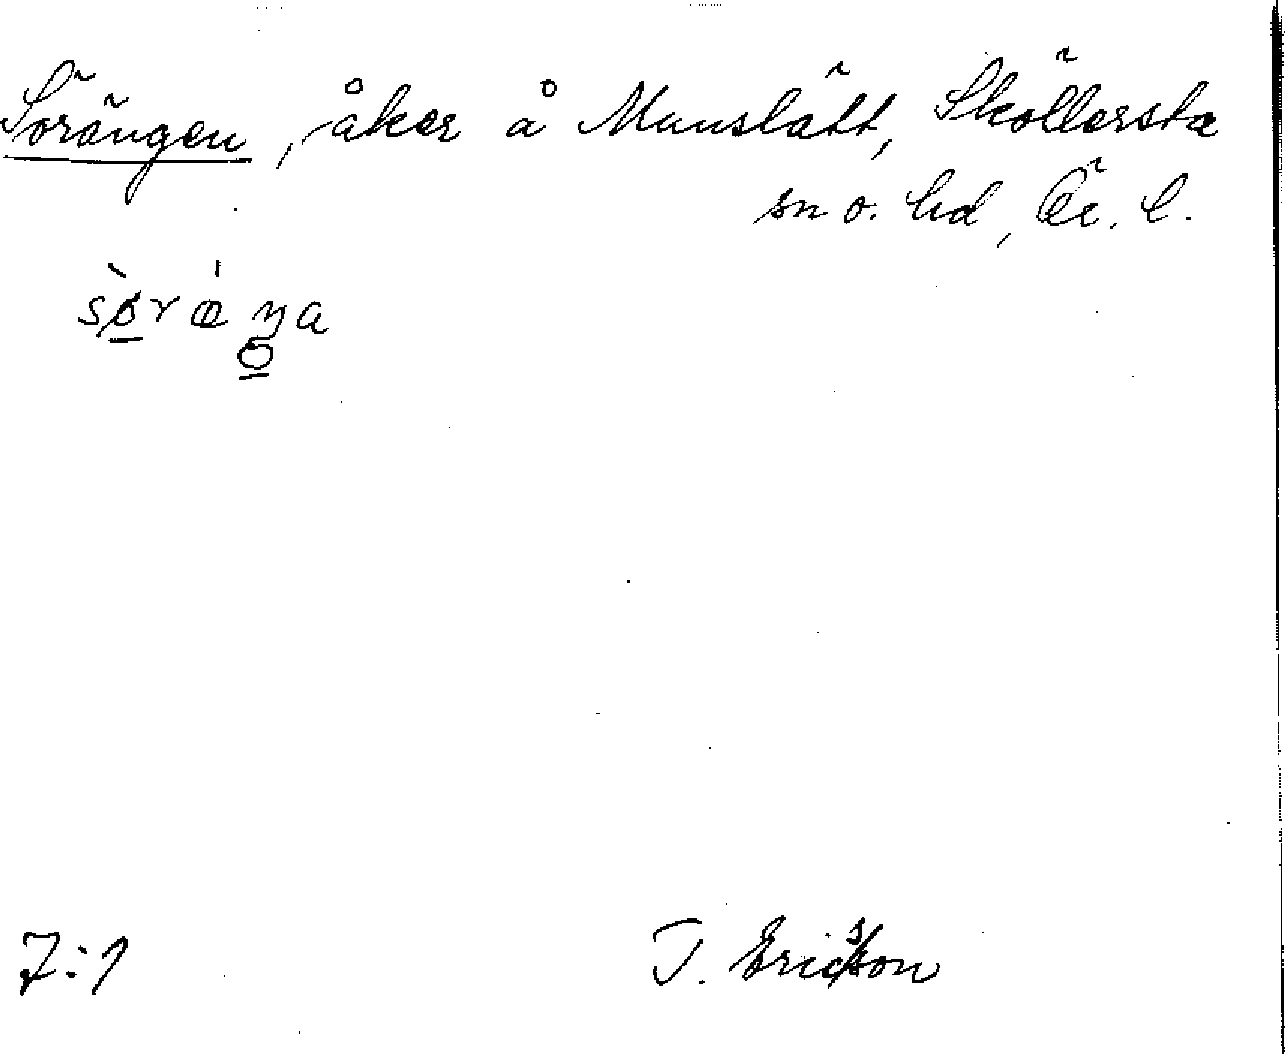 Sörängen, åker å Munslätt, Sköllersta
sn o. hd, Ör. l.
sø̱̀rǽŋ̱a
7:1
T. Ericsson